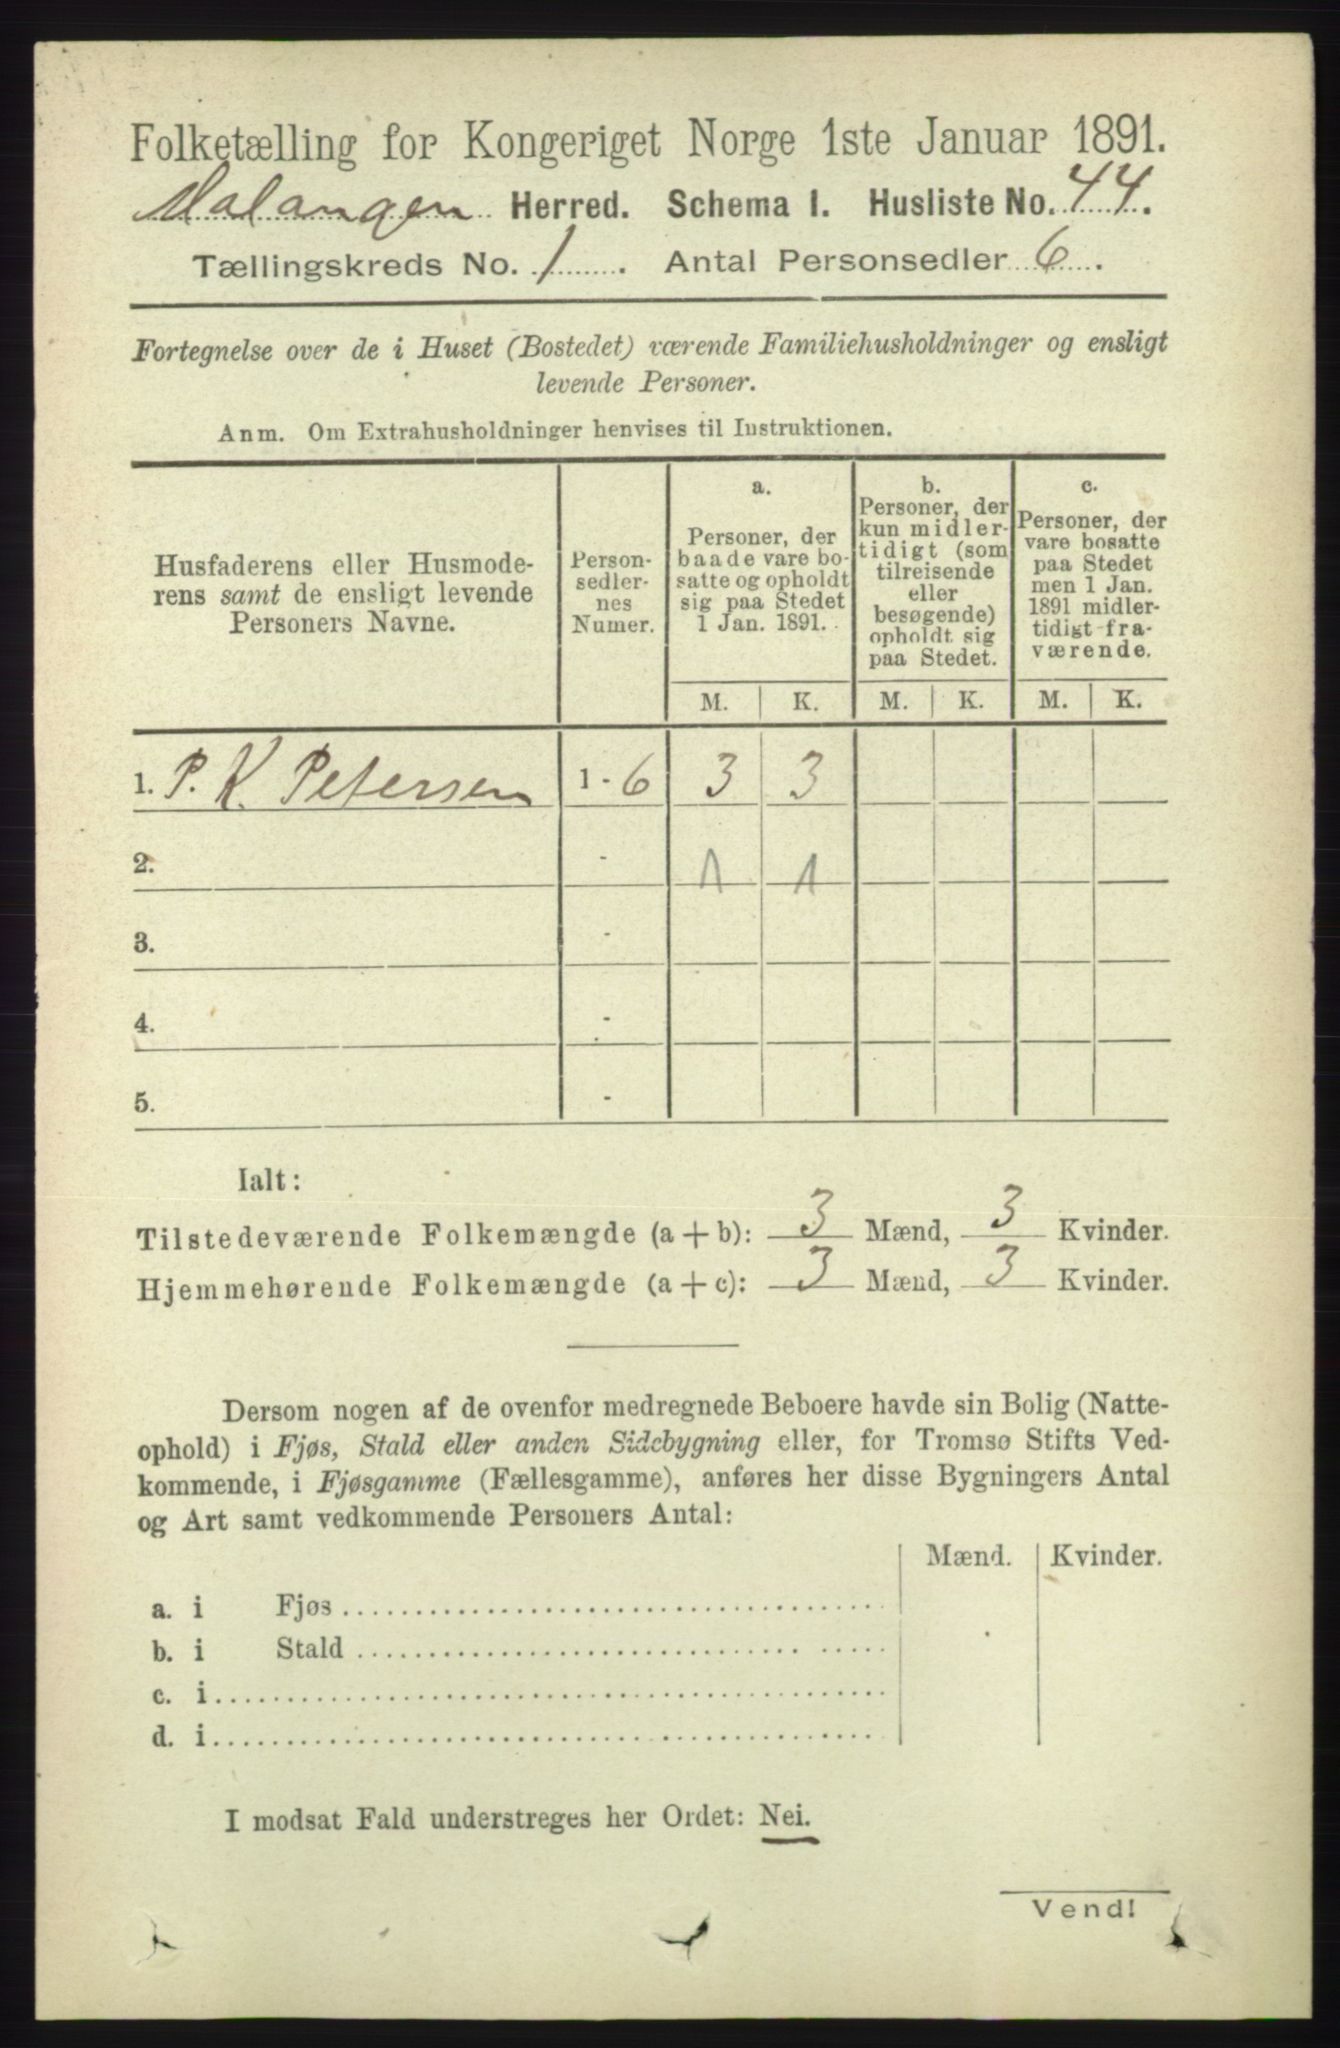 Folketælling for Kongeriget Norge 1ste Januar 1891.
Malangen Herred. Schema I. Husliste No. 44.
Tællingskreds No. 1. Antal Personsedler 6.
Fortegnelse over de i Huset (Bostedet) værende Familiehusholdninger og ensligt
levende Personer.
Anm. Om Extrahusholdninger henvises til Instruktionen.
Husfaderens eller Husmode-
rens samt de ensligt levende
Personers Navne.
Person-
sedler-
nes
Numer.
a.
Personer, der
baade vare bo-
satte og opholdt
sig paa Stedet
1 Jan. 1891.
b.
Personer, der
kun midler-
tidigt (som
tilreisende
eller
besøgende)
opholdt sig
paa Stedet.
c.
Personer, der
vare bosatte
paa Stedet
men 1 Jan.
1891 midler-
tidigt fra-
værende.
M. K. M. K. M. K.
1. P. K. Petersen 1 - 6 3 3
2. - 1 1
3. -
4. -
5. -
Ialt:
Tilstedeværende Folkemængde (a + b): 3 Mænd, 3 Kvinder.
Hjemmehørende Folkemængde (a + c): 3 Mænd, 3 Kvinder.
Dersom nogen af de ovenfor medregnede Beboere havde sin Bolig (Natte-
ophold) i Fjøs, Stald eller anden Sidebygning eller, for Tromsø Stifts Ved-
kommende, i Fjøsgamme (Fællesgamme), anføres her disse Bygningers Antal
og Art samt vedkommende Personers Antal:
Mænd. Kvinder.
a. i Fjøs
b. i Stald
c. i
d. i
I modsat Fald understreges her Ordet: Nei.
Vend!